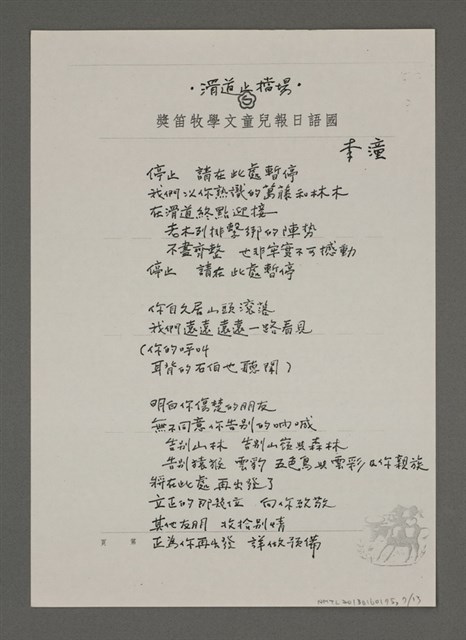 ·滑道止擋場·
獎笛牧學文童兒報日語國
李潼
停止 請在此處暫停
我們以你熟識的葛藤和林木
在滑道終點迎接
老木列排緊綁的陣勢
不盡齊整 也非牢實不可撼動
停止 請在此處暫停
你自久居山頭滾落
我們遠遠遠遠一路看見
(你的呼叫
耳背的石伯也聽聞)
明白你傷楚的朋友
無不同意你告別的吶喊
告別山林 告別山嶺與森林
告別猿猴 雲豹 五色鳥與雲彩 你親族
將在此處再出發了
立正的那幾位 向你致敬
其他友朋 收拾別情
正為你再出發 詳做預備
頁 第
NMTL20130160195, 7/13